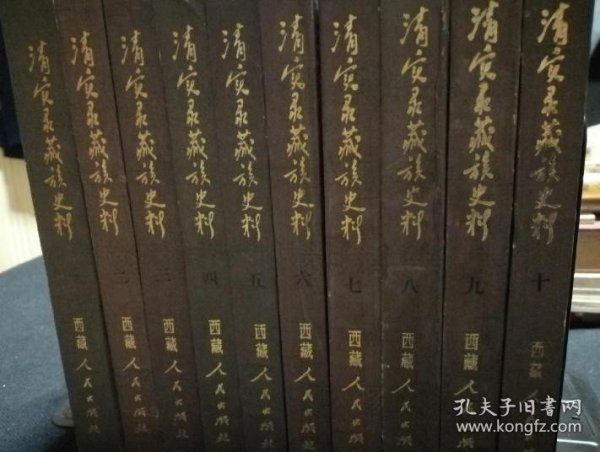 清实录藏族史料 一 西藏人民出版社
清实录藏族史料 二 西藏人民出版社
清实录藏族史料 三 西藏人民出版社
清实录藏族史料 四 西藏人民出版社
清实录藏族史料 五 西藏人民出版社
清实录藏族史料 六 西藏人民出版社
清实录藏族史料 七 西藏人民出版社
清实录藏族史料 八 西藏人民出版社
清实录藏族史料 九 西藏人民出版社
清实录藏族史料 十 西藏人民出版社
孔夫子旧书网
www.kongfz.com